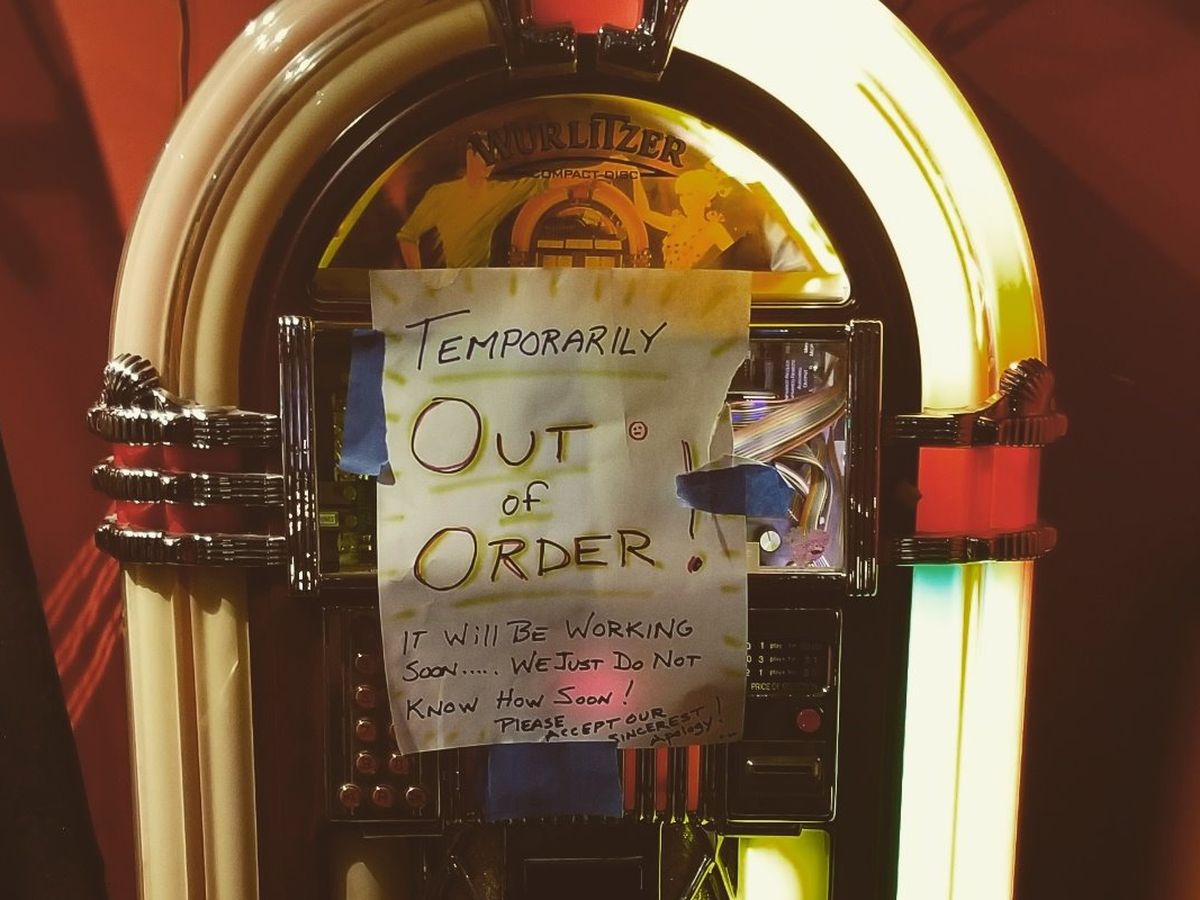 WURLITZER
COMPACT DISC
TEMPORARILY
OUT
of
ORDER!
IT Will BE WORKING
SOON..... WE JUST DO NOT
KNOW HOW SOON!
PLEASE ACCEPT OUR SINCEREST Apology!...
PRICE OF